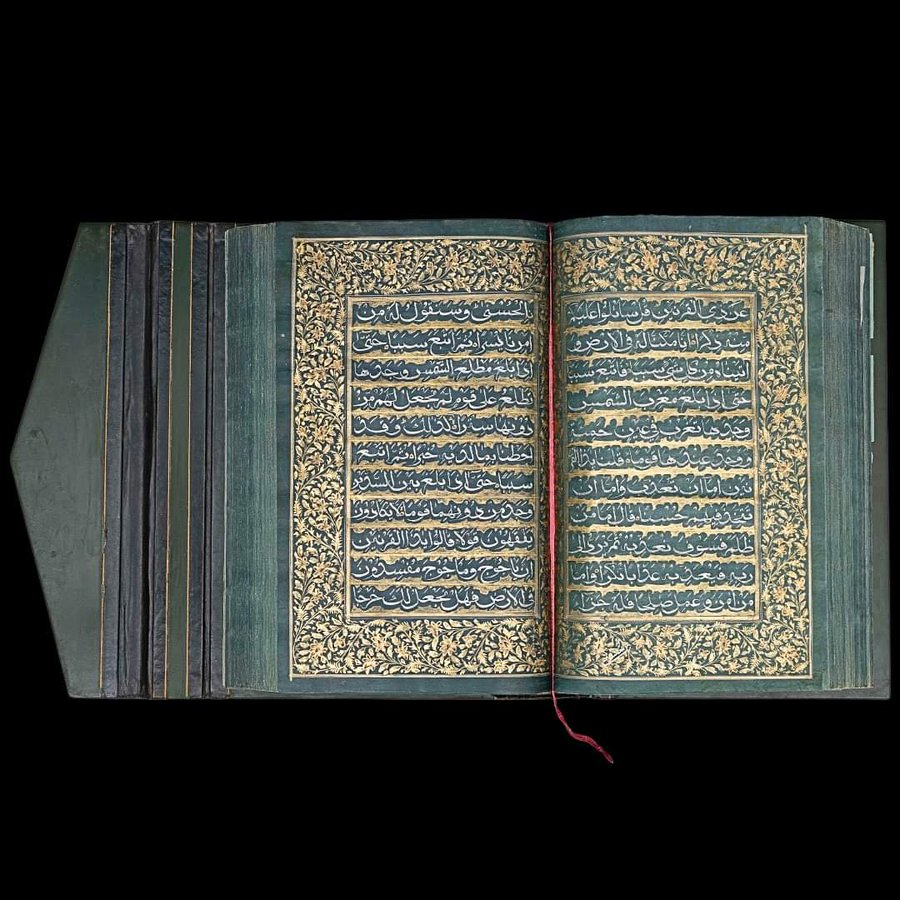 عن ذي القرنين قل ساتلوا عليكم
منه ذكرا انا مكنا له في الارض و
اتيناه من كل شيء سببا فاتبع سببا
حتى اذا بلغ مغرب الشمس
وجدها تغرب في عين حمئة
ووجد عندها قوما قلنا يا ذا
القرنين اما ان تعذب واما ان
تتخذ فيهم حسنا قال اما من
ظلم فسوف نعذبه ثم يرد الى
ربه فيعذبه عذابا نكرا واما
من امن وعمل صالحا فله جزاء
الحسنى وسنقول له من
امرنا يسرا ثم اتبع سببا حتى
اذا بلغ مطلع الشمس وجدها
تطلع على قوم لم نجعل لهم من
دونها سترا كذلك وقد
احطنا بما لديه خبرا ثم اتبع
سببا حتى اذا بلغ بين السدين
وجد من دونهما قوما لا يكادون
يفقهون قولا قالوا يا ذا القرنين
ان ياجوج وماجوج مفسدون
في الارض فهل نجعل لك خرجا